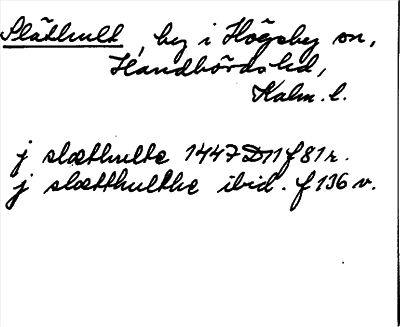 Slāthult, by i Högsby sn,
Handbörds hd,
Kalm. l.
j slæthulte 1447 D11 f 81 r.
j slætthulthe ibid. f 136 v.